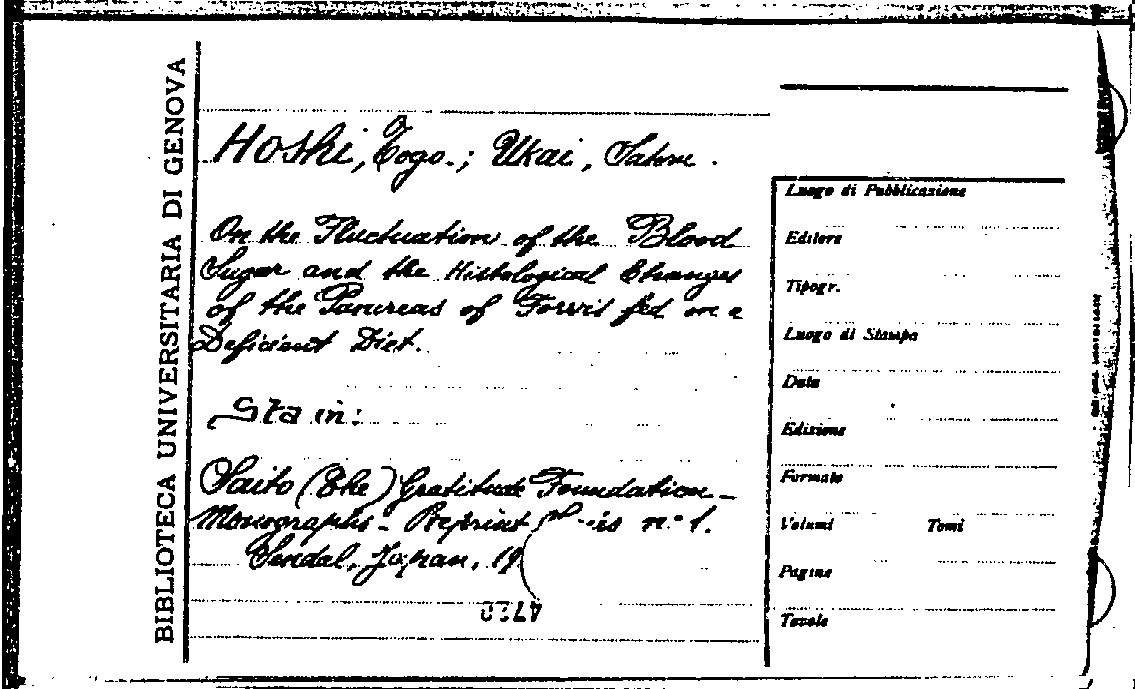 BIBLIOTECA UNIVERSITARIA DI GENOVA
Hoshi, Togo.; Ukai, Satoru.
On the Fluctuation of the Blood
Sugar and the Histological Changes
of the Pancreas of fed on a
Deficient Diet.
Sta in:
Saito (The) Gratitude Foundation-
Monographs - Reprint n.º 1.
Sendai, Japan, 19
4720
Luogo di Pubblicazione
Editore
Tipogr.
Luogo di Stampa
Data
Edizione
Formato
Volumi Tomi
Pagine
Tavole